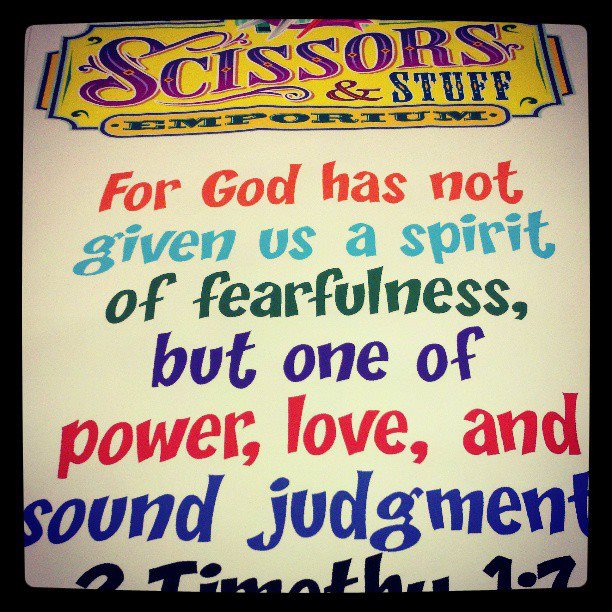 SCISSORS
& STUFF
• EMPORIUM •
For God has not
given us a spirit
of fearfulness,
but one of
power, love, and
sound judgment
2 Timothy 1:7